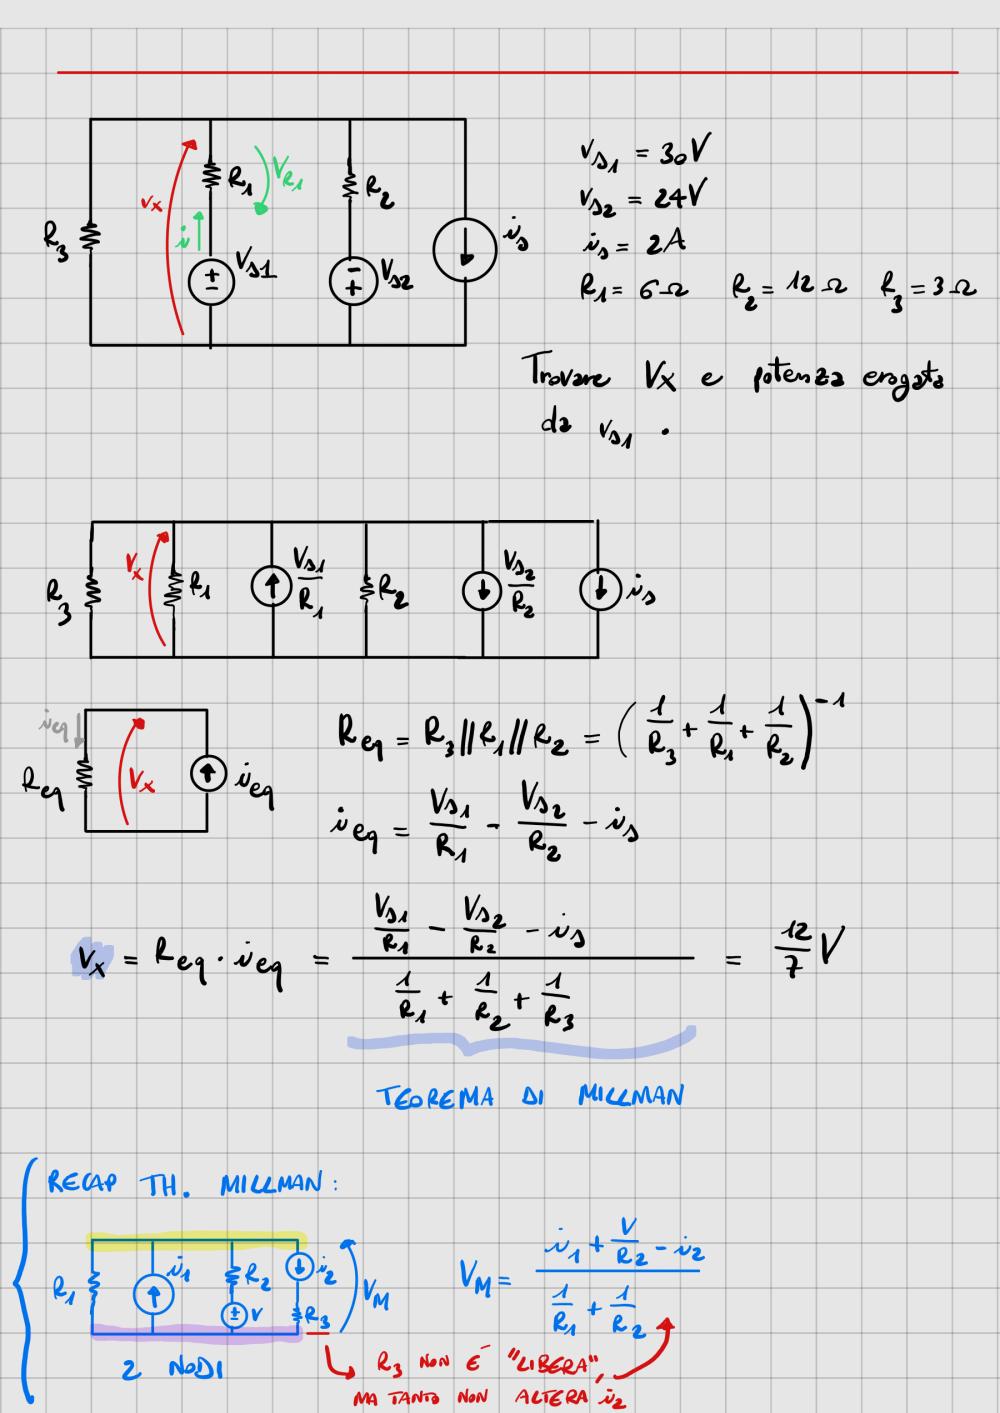 R₃
vₓ
R₁
V_R1
i
+
-
V_s1
R₂
-
+
V_s2
i_s
v_s1 = 30V
v_s2 = 24V
i_s = 2A
R₁ = 6Ω R₂ = 12Ω R₃ = 3Ω
Trovare Vₓ e potenza erogata
da v_s1 .
R₃
Vₓ
R₁
V_s1/R₁
R₂
V_s2/R₂
i_s
i_eq
R_eq
Vₓ
i_eq
R_eq = R₃//R₁//R₂ = (1/R₃ + 1/R₁ + 1/R₂)⁻¹
i_eq = V_s1/R₁ - V_s2/R₂ - i_s
Vₓ = R_eq · i_eq = (V_s1/R₁ - V_s2/R₂ - i_s) / (1/R₁ + 1/R₂ + 1/R₃) = 12/7 V
TEOREMA DI MILLMAN
RECAP TH. MILLMAN:
R₁
i₁
R₂
+
-
V
i₂
R₃
V_M
V_M = (i₁ + V/R₂ - i₂) / (1/R₁ + 1/R₂)
2 NODI
R₃ NON E' "LIBERA",
MA TANTO NON ALTERA i₂